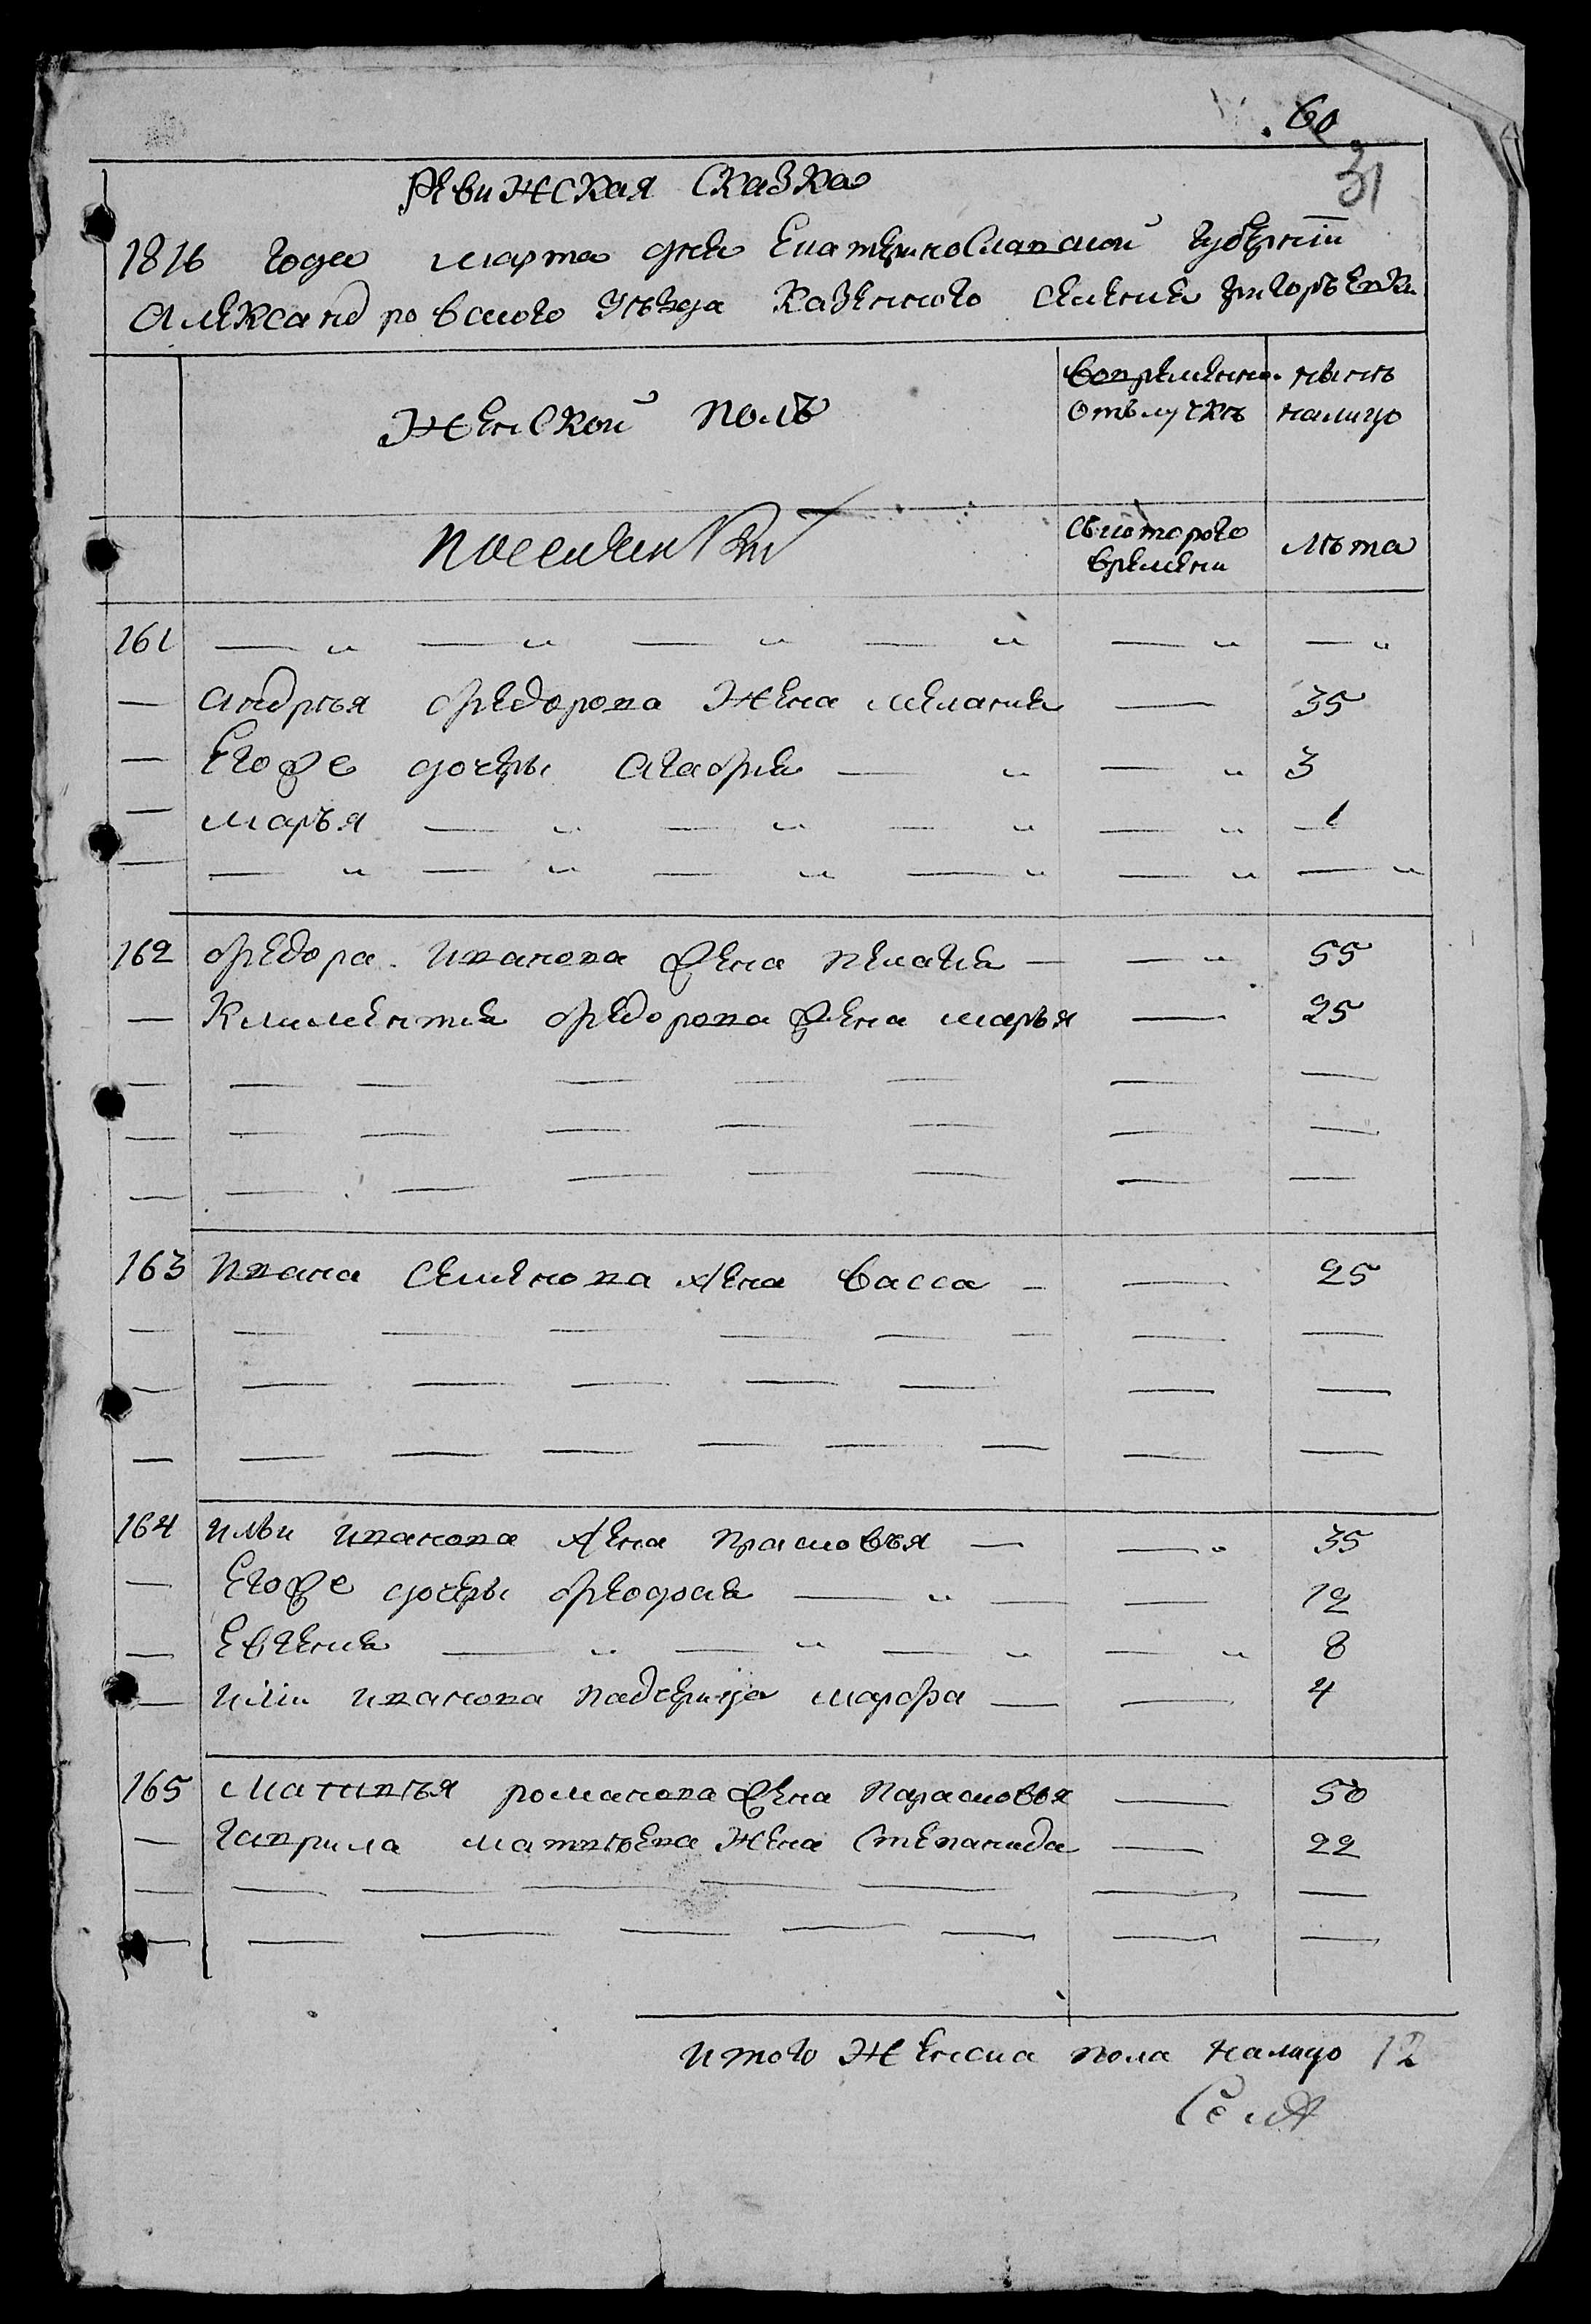 60
31
Ревижская Сказка
1816 года марта дня Екатеринославской губерніи
Александровского уѣзда Казенного селения Григорьевки
Женской полъ
вовременно. нынѣ
отълучкѣ налицо
Съкоторого лѣта
времени
161 — „ — „ — „ — „ — „ — „
— Андрѣя Федорова Жена мелания — 35
— Его же дочеры Агафия — „ — „ 3
— марья — „ — „ — „ — „ 1
— — „ — „ — „ — „ — „ — „
162 Федора Иванова жена пелагия — — „ 55
— Климентия Федорова жена марья — 25
163 Ивана Семенова жена Васса — — 25
164 Ильи Иванова жена прасковья — — „ 35
— Его же дочеры Феодосия — „ — — 12
— Евгения — „ — „ — „ — „ 8
— Иліи Иванова падчерица марфа — — 4
165 Матвѣя романова жена Парасковья — 50
— Гаврила матвѣева Жена Степанида — 22
Итого Женска пола налицо 12